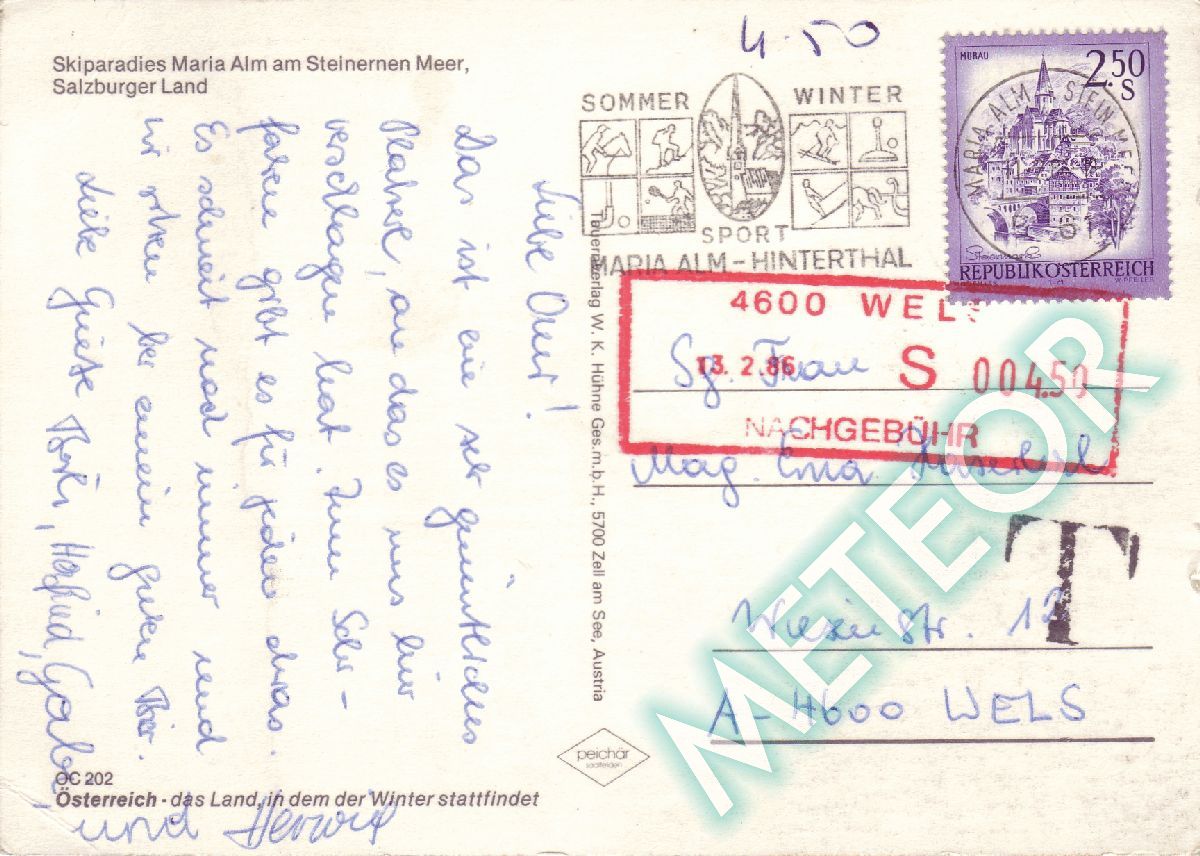 Skiparadies Maria Alm am Steinernen Meer,
Salzburger Land
Liebe Omi!
Das ist ein sehr gemütliches
Platzerl, an das es uns hier
verschlagen hat. Zum Schi-
fahren gibt es für jeden etwas.
Es schneit noch immer und
wir sitzen bei einem guten Bier.
Liebe Grüsse
Gabi,
und Herwig
OC 202
Österreich - das Land, in dem der Winter stattfindet
Tauernverlag W. K. Hühne Ges.m.b.H., 5700 Zell am See, Austria
peichär
saalfelden
4.50
SOMMER WINTER
SPORT
MARIA ALM - HINTERTHAL
MURAU
2.50
S
Steiermark
REPUBLIK ÖSTERREICH
MARIA ALM A STEIN MEER
4600 WELS
13. 2.86 S 004.50
NACHGEBÜHR
Sg. Frau
Mag. Erna
T
Wiesenstr. 12
A-4600 WELS
METEOR